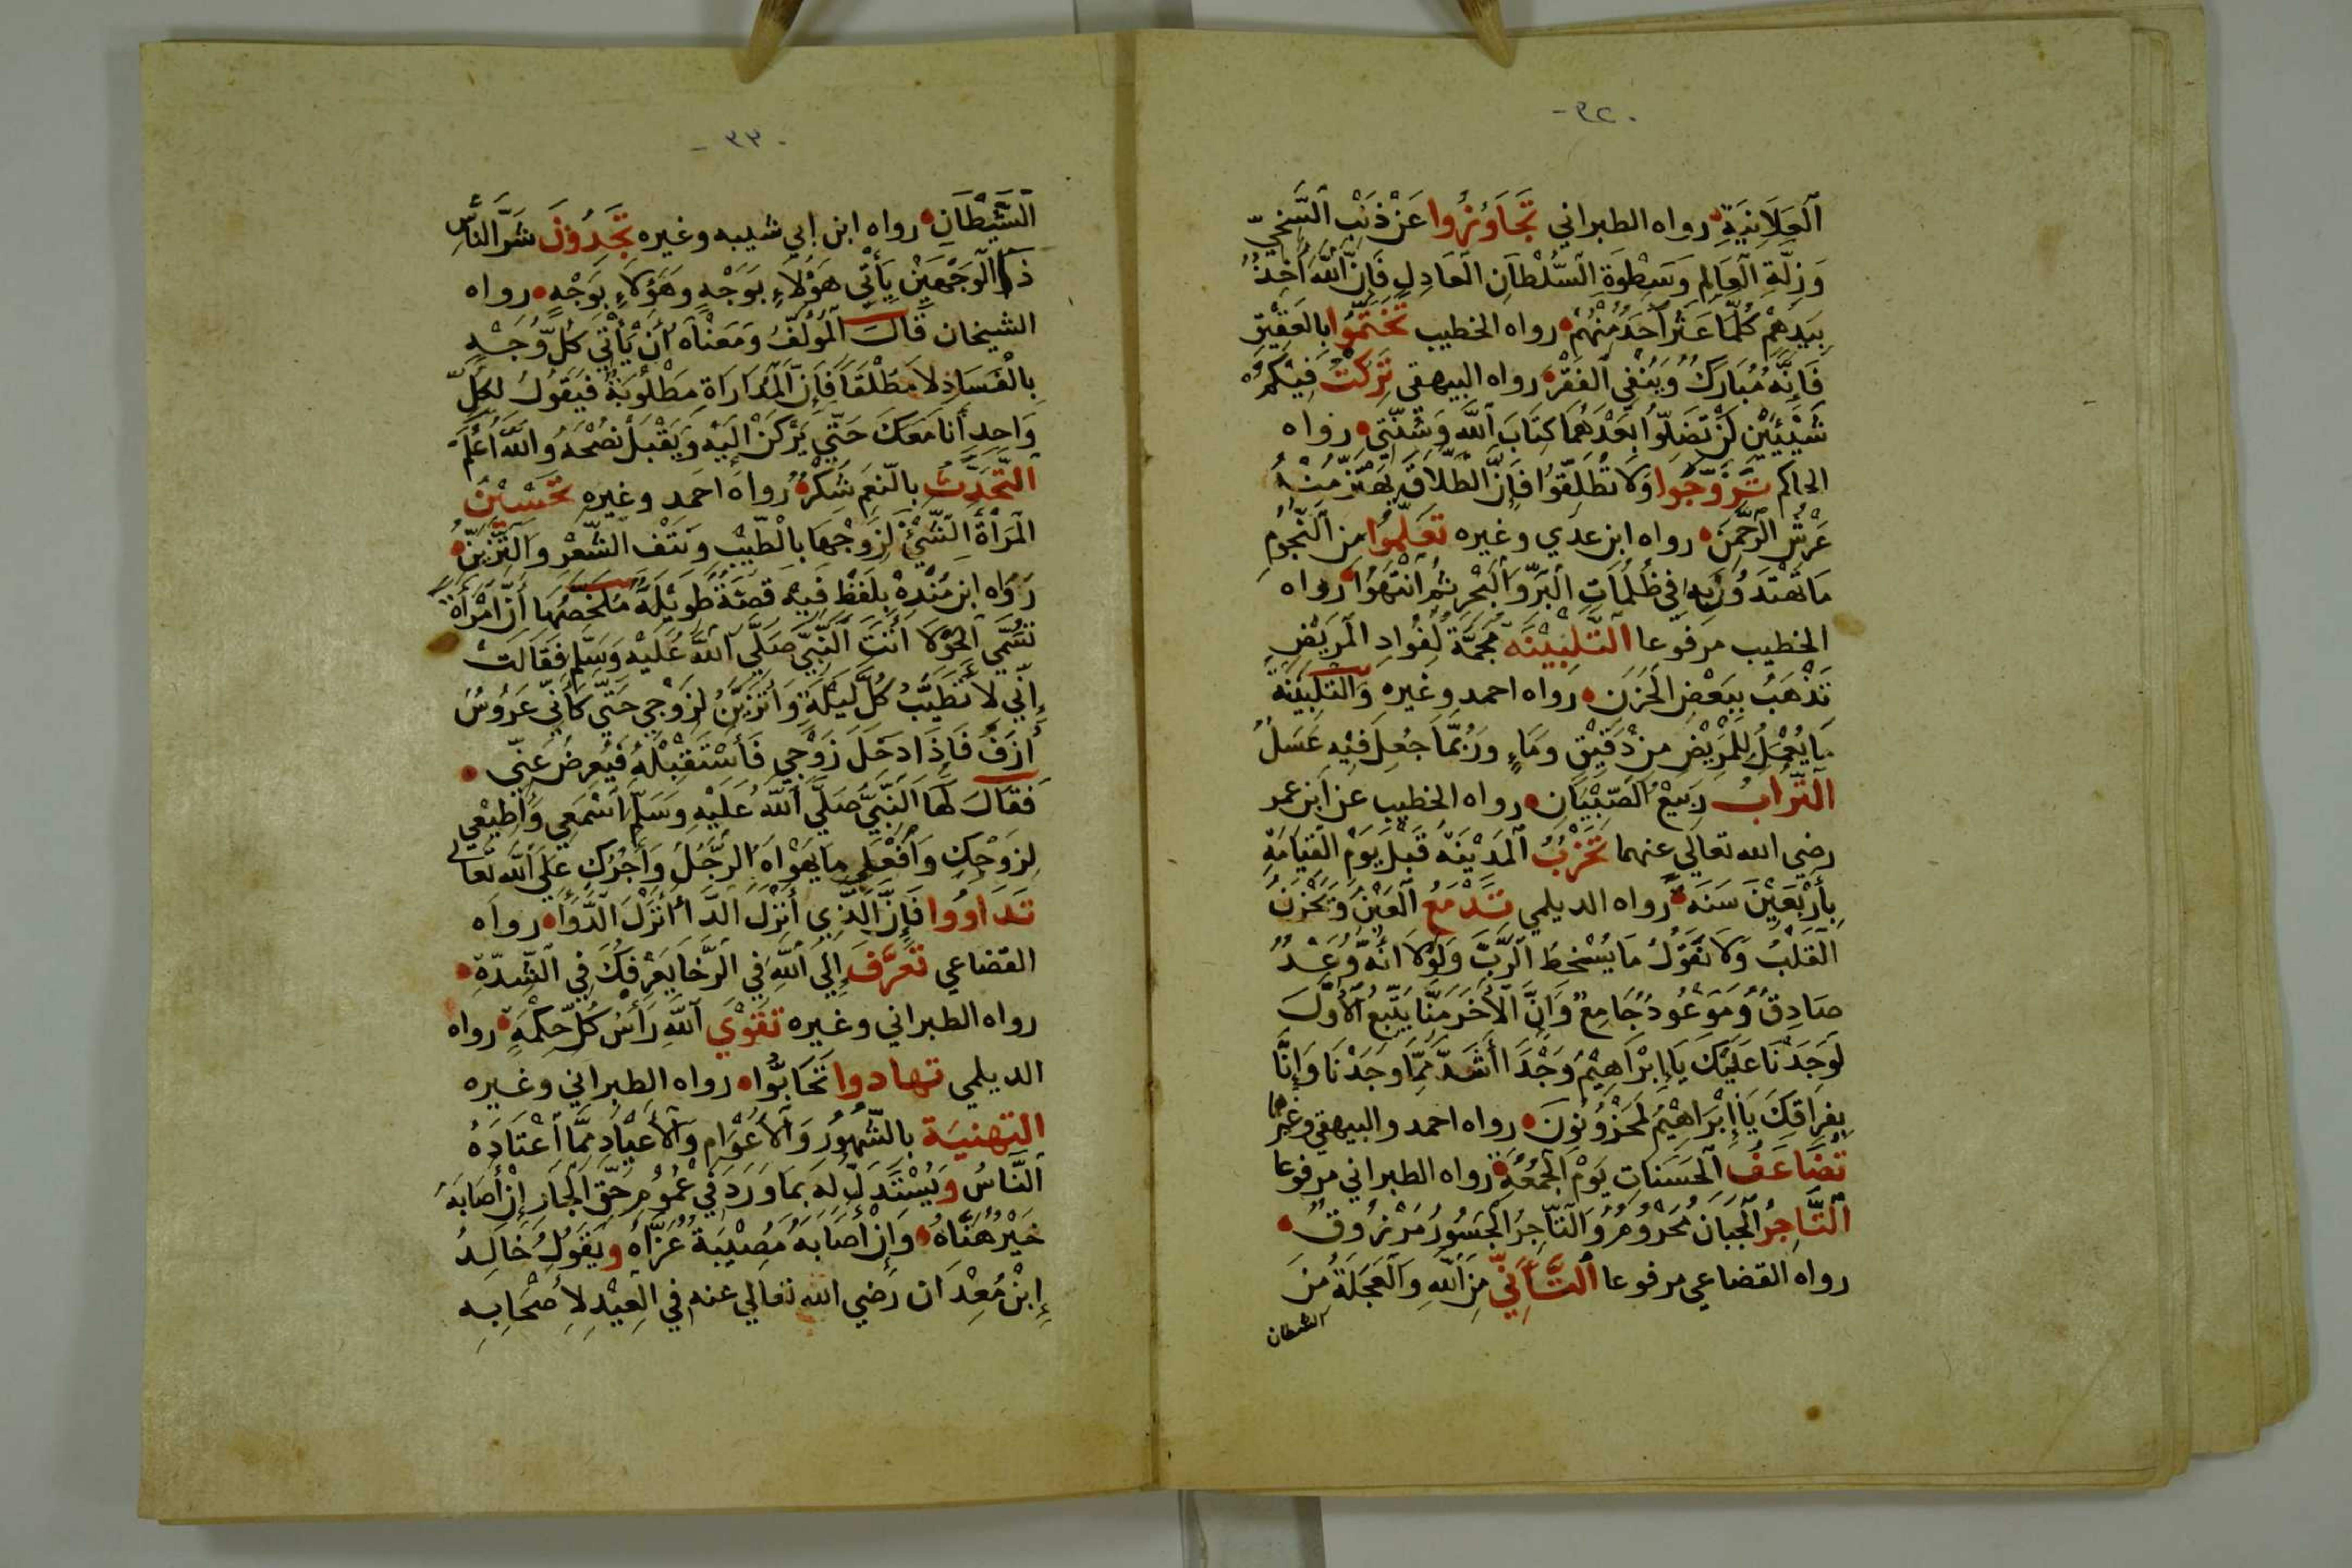 -٣٢.
العلانية رواه الطبراني تجاوزوا عن ذنب السخيّ
وزلّة العالم وسطوة السّلطان العادل فإنّ الله آخذ
بيدهم كلّما عثر أحد منهم رواه الخطيب تختّموا بالعقيق
فإنّه مبارك وينفي الفقر رواه البيهقي تركت فيكم
شيئين لن تضلّوا بعدهما كتاب الله وسنّتي رواه
الحاكم تزوّجوا ولا تطلّقوا فإنّ الطّلاق يهتزّ منه
عرش الرّحمن رواه ابن عدي وغيره تعلّموا من النّجوم
ما تهتدون به في ظلمات البرّ والبحر ثم انتهوا رواه
الخطيب مرفوعا التّلبينه مجمّة لفواد المريض
تذهب ببعض الحزن رواه احمد وغيره والتلبينة
ما يعمل للمريض من دقيق وماء وربّما جعل فيه عسل
التّراب ربيع الصّبيان رواه الخطيب عن ابن عمر
رضي الله تعالي عنهما تخرب المدينة قبل يوم القيامة
بأربعين سنة رواه الديلمي تدمع العين ويحزن
القلب ولا نقول ما يسخط الرّبّ ولولا انّه وعد
صادق وموعود جامع وانّ الآخر منّا يتّبع الاوّل
لوجدنا عليك يا إبراهيم وجدا أشدّ ممّا وجدنا وإنّا
بفراقك يا إبراهيم لمحزونون رواه احمد والبيهقي وغيرهما
تضاعف الحسنات يوم الجمعة رواه الطبراني مرفوعا
التّاجر الجبان محروم والتّاجر الجسور مرزوق
رواه القضاعي مرفوعا التّأنّي من الله والعجلة من
الشيطان
-٣٣.
الشّيطان رواه ابن ابي شيبه وغيره تجدون شرّ النّاس
ذا الوجهين يأتي هؤلاء بوجه وهؤلاء بوجه رواه
الشيخان قال المؤلّف ومعناه أن يأتي كلّ وجه
بالفساد لا مطلقا فإنّ المداراة مطلوبة فيقول لكلّ
واحد أنا معك حتّي يركن إليه ويقبل نصحه والله أعلم
التّحدّث بالنّعم شكر رواه احمد وغيره تحسين
المرأة الشّيئ لزوجها بالطّيب ونتف الشّعر والتّزيّن
رواه ابن منده بلفظ فيه قصّة طويلة ملخّصها أنّ امرأة
تسمّي الحولا أتت النّبيّ صلّي الله عليه وسلّم فقالت
إنّي لأتطيّب كلّ ليلة وأتزيّن لزوجي حتّي كأنّي عروس
أزفّ فاذا دخل زوجي فأستقبله فيعرض عنّي
فقال لها النّبيّ صلّي الله عليه وسلّم اسمعي وأطيعي
لزوجك وافعلي ما يهواه الرّجل وأجرك علي الله تعالي
تداووا فإنّ الّذي أنزل الدّاء أنزل الدّواء رواه
القضاعي تعرّف إلي الله في الرّخا يعرفك في الشّدّة
رواه الطبراني وغيره تقوي الله رأس كلّ حكمة رواه
الديلمي تهادوا تحابّوا رواه الطبراني وغيره
التهنية بالشّهور والأعوام والأعياد ممّا اعتاده
النّاس ويستدلّ له بما ورد في عموم حقّ الجار إن أصابه
خير هنّاه وإن أصابه مصيبة عزّاه ويقول خالد
إبن معدان رضي الله تعالي عنه في العيد لأصحابه